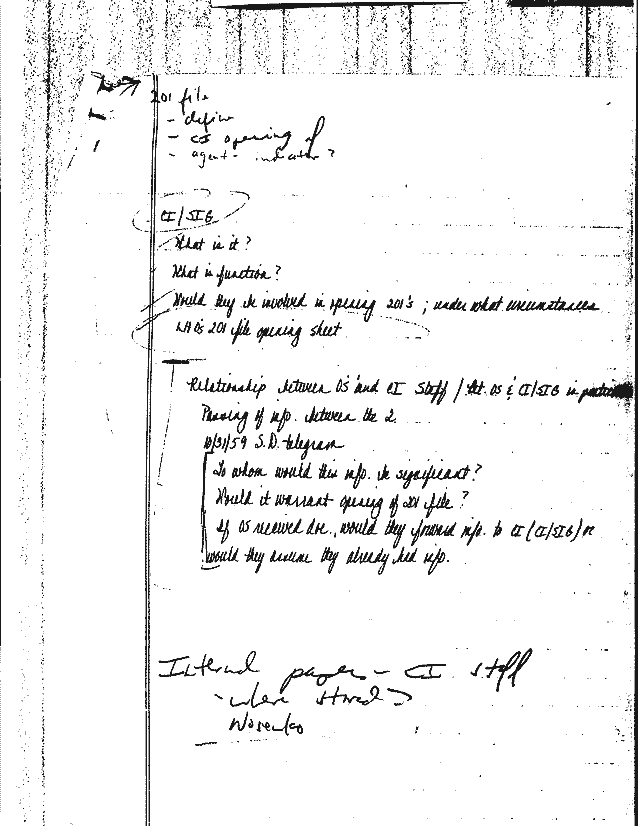 201 file
- define
- CI opening of
- agent - indicator?
CI/SIG
What is it?
What is function?
Would they be involved in opening 201's ; under what circumstances
LHO's 201 file opening sheet
Relationship between OS and CI Staff / Bet. OS & CI/SIG in particular
Passing of info. between the 2.
10/31/59 S.D. telegram
To whom would this info. be significant?
Would it warrant opening of 201 file?
If OS received doc., would they forward info. to CI (CI/SIG) or
would they assume they already had info.
Internal papers - CI staff
- where stored?
Nosenko